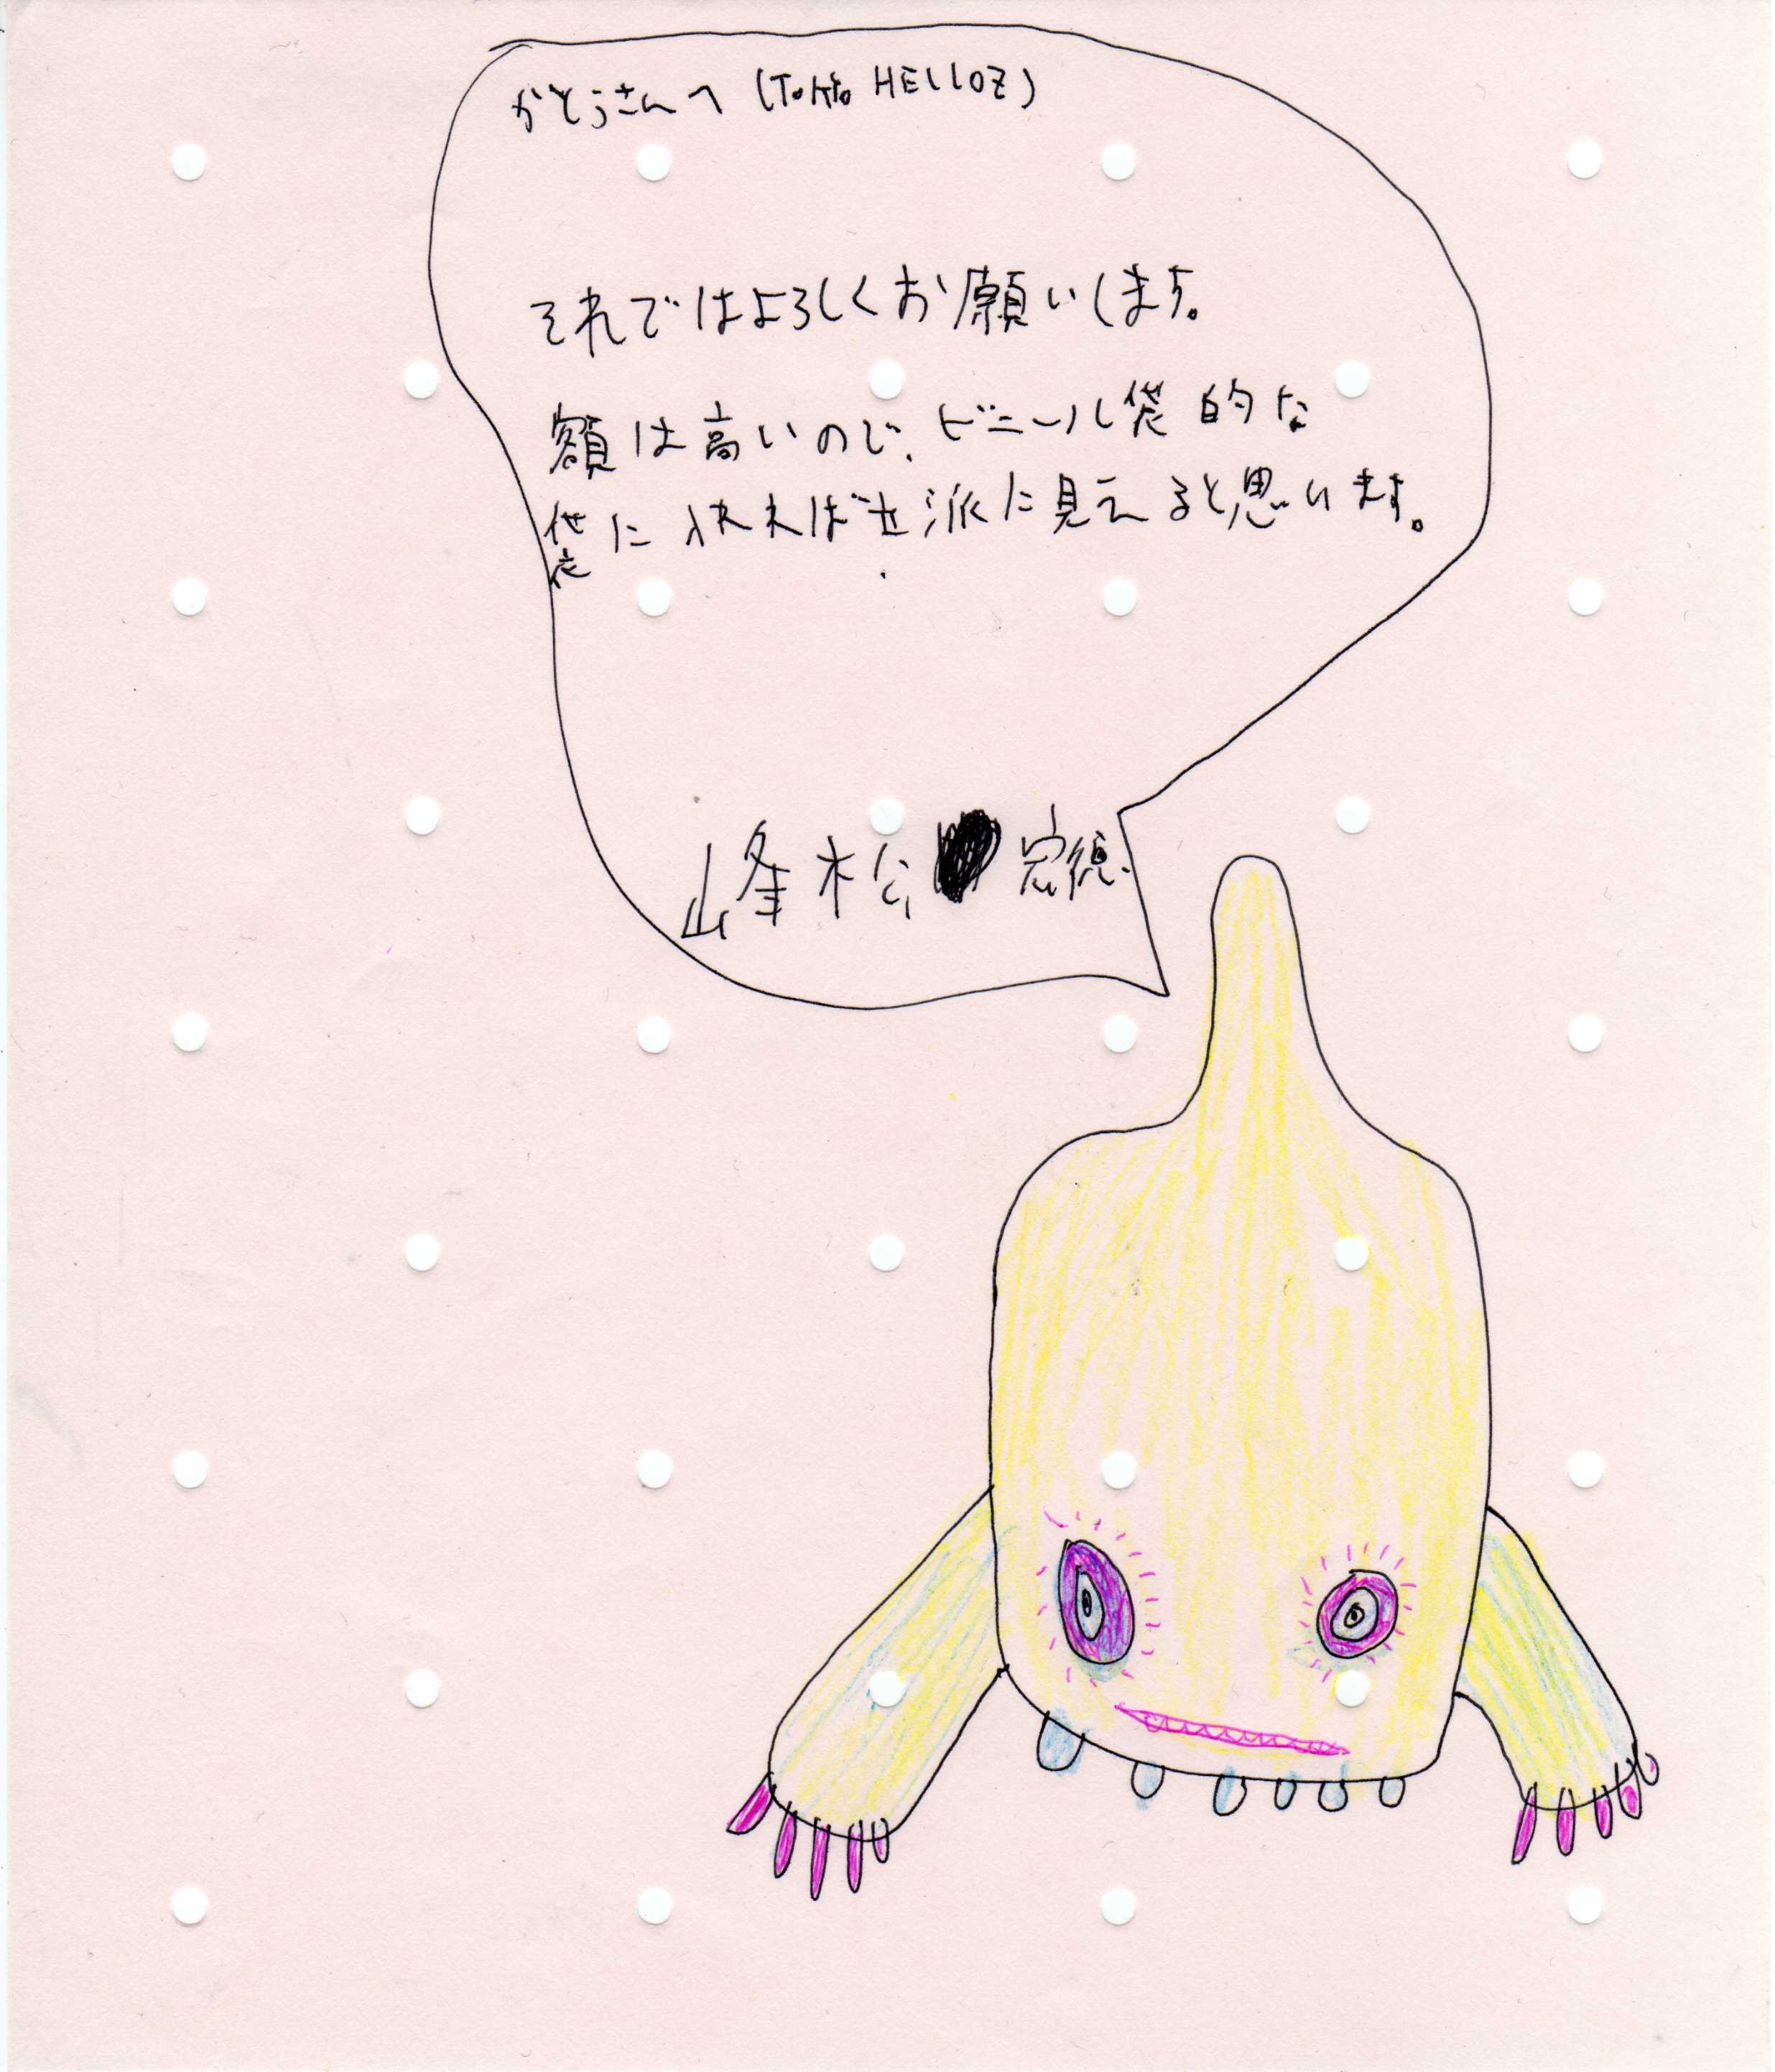 かとうさんへ (Tokyo HELLOZ)
それではよろしくお願いします。
額は高いので、ビニール袋的な
袋に入れれば立派に見えると思います。
峰松宏徳